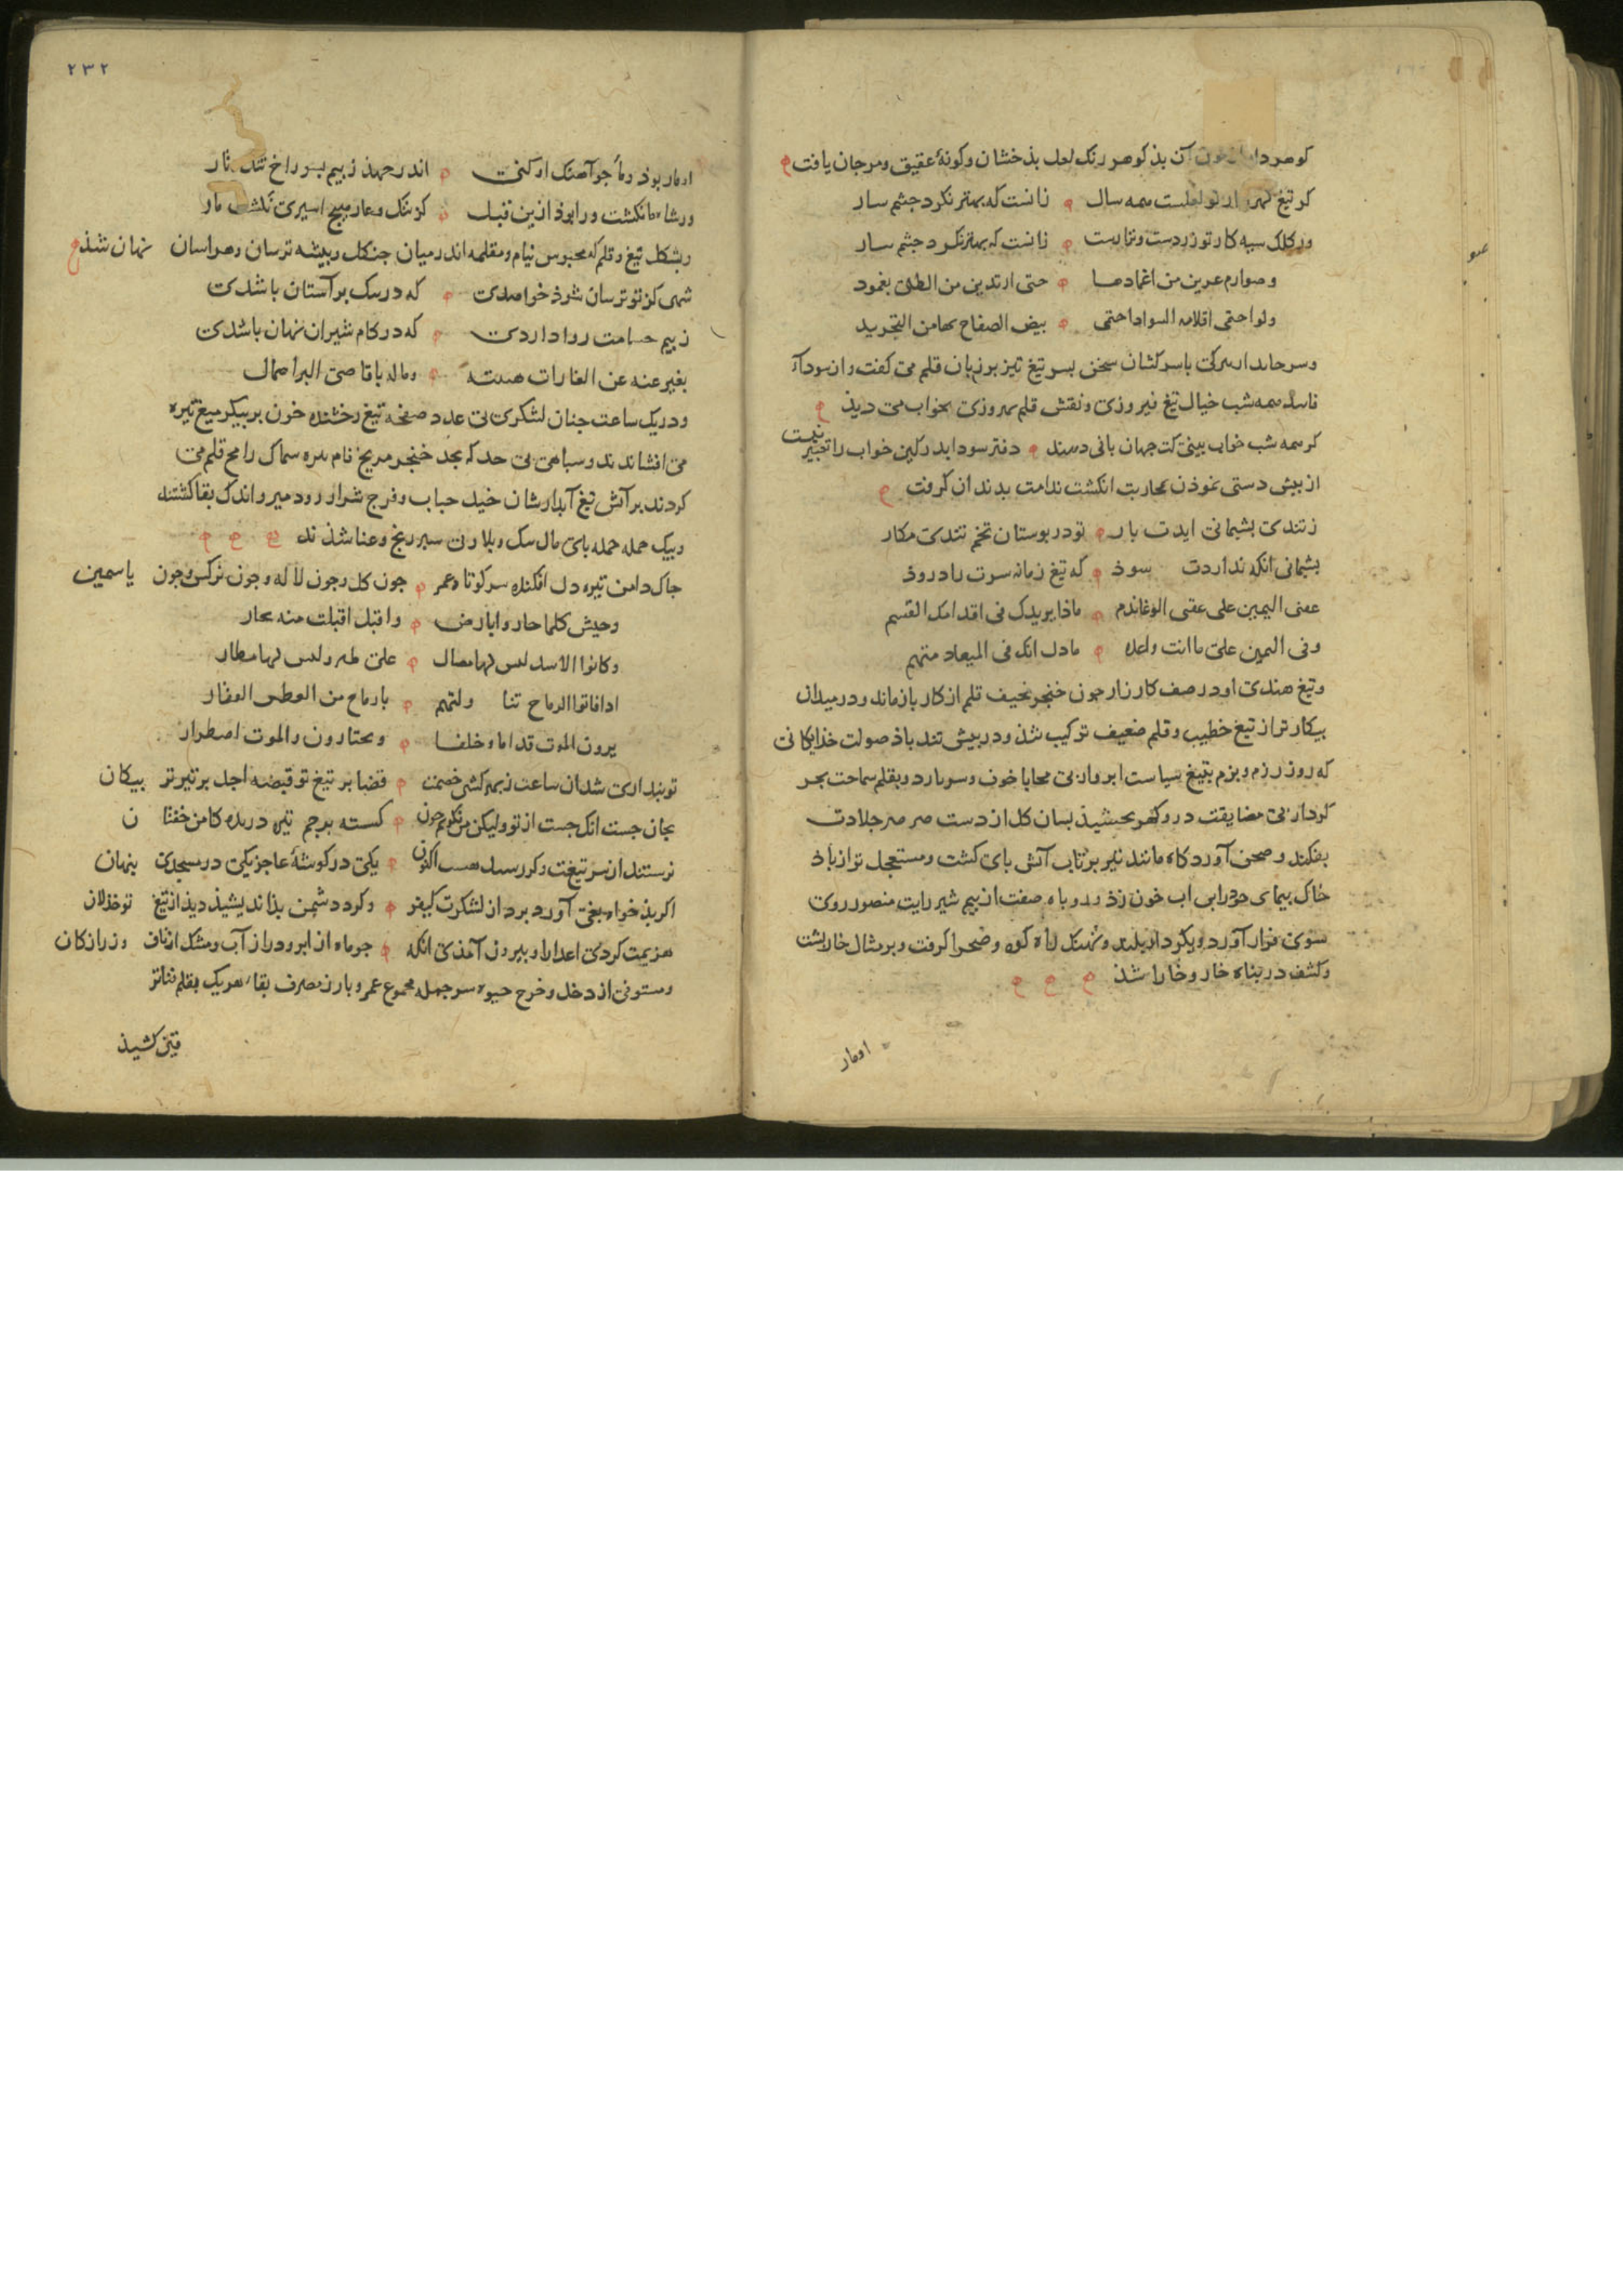 کوهردا خون آن بذ کوهر رنک لعل بذخشان و کونهٔ عقیق و مرجان یافت
کر تیغ همه سال زانست که بهتر نکرد جشم سار
ورکلک سیه کار تو زردست زانست که بهتر نکرد جشم سار
وصوارم عرین من اغمادها حتی ارتدین من الطلی بغمود
ولواحتمی اقلامه بیض الصفاح من التجرید
با سرکشان سخن بسر تیغ تیز بر زبان قلم می کفت و ان سودآء
فاسد همه شب خیال تیغ نیروزی و نقش قلم بهروزی بخواب می دیذ
کر همه شب خواب بینی کت جهان بانی دهند دفتر سودا بدر کین خواب را تعبیر نیست
از بیش دستی نموذن محاربت انکشت ندامت بدندان کرفت
ز تندی بشیمانی ایدت بار تو در بوستان تخم تندی مکار
بشیمانی انکه نداردت سوذ که تیغ زمانه سرت را دروذ
عقبی الیمین علی عقبی الوغا ندم ماذا یریدک فی اقدامک القسم
وفی الیمین علی ما انت واعده ما دل انک فی المیعاد متهم
و تیغ هندی او در صف کارزار جون خنجر نحیف قلم از کار باز ماند و در میدان
بیکار تر از تیغ خطیب و قلم ضعیف ترکیب شذ و در بیش تندباذ صولت خذایکانی
که روز رزم و بزم بتیغ سیاست ابروار بی محابا خون و سر بارد و بقلم سماحت بحر
کردار بی مضایقت در و کهر بخشیذ بسان کل از دست صرصر جلادت
بفکند و صحن آورد کاه مانند تیر برتاب آتش بای کشت و مستعجل تر از باذ
خاک بیمای اب خون زذ و روباه صفت از بیم شیر رایت منصور روی
سوی فرار آورد و بکردار بلند و نهنک راه کوه و صحرا کرفت و بر مثال خاربشت
و کشف در بناه خار و خارا شذ
او مار
۲۳۲
او مار بوذ و ما جو آهنک او کنی اندر جهذ ز بیم بسوراخ تنک مار
ورشاه ما نکشت ورا بوذ ازین قبل کز ننک و عار هیج اسیری نکشت مار
و بشکل تیغ و قلم که محبوس نیام و مقلمه اند در میان جنکل و بیشه ترسان و هراسان نهان شذ
شهی کز تو ترسان شوذ خواهدی که در سک بر آستان باشدی
ز بیم حسامت روا داردی که در کام شیران نهان باشدی
بغیر عنه عن الغارات هیبته وماله باقاصی البر اهمال
و در یک ساعت جنان لشکری بی عدد صفحه تیغ رخشنده خون بر بیکر میغ تیره
می افشاندند و سباهی بی حد که بحد خنجر مریخ فام بهره سماک رامح قلم می
کردند بر آتش تیغ آبدارشان خیل حباب و فرج شرار زود میر و اندک بقا کشتند
و بیک حمله حمله بای مال سک و بلارک سیر رنج و عنا شذند
جاک دامن تیره دل افکنده سر کوتاه عمر جون کل و جون لاله و جون نرکس و جون یاسمین
وجیش کلما حاروا بارض واقبل اقبلت منه بحار
وکانوا الاسد لیس لها مصال علی طیر ولیس لها مطار
اذا فاتوا الرماح تناولتهم بارماح من العطش القفار
یرون الموت قداما وخلفا ویختارون والموت اضطرار
تو بنداری شد ان ساعت ز بهر کشتن خصمت قضا بر تیغ تو قبضه اجل بر تیر تو بیکان
بجان جست انک جست از تو ولیکن من نکویم جون کسسته برجم تیره دریده کامن خفتان
نرستند از سر تیغت وکر رستند هست اکنون یکی در کوشهٔ عاجز یکی در مسجدی بنهان
اکر بذ خواه بغی آورد برد از لشکرت کیفر وکر د دشمن بذ اندیشیذ دیذ از تیغ تو خذلان
هزیمت کردی اعدا را و بیرون آمذی انکه جو ماه از ابر و در از آب و مشک از ناف و زر از کان
و مستوفی از دخل و خرج حیوه سر جمله مجموع عمر و بارز مصرف بقاء هر یک بقلم فنا تر
قینی کشیذ